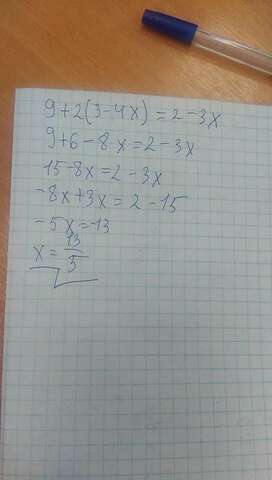 9+2(3-4x)=2-3x
9+6-8x=2-3x
15-8x=2-3x
-8x+3x=2-15
-5x=-13
x=13/5